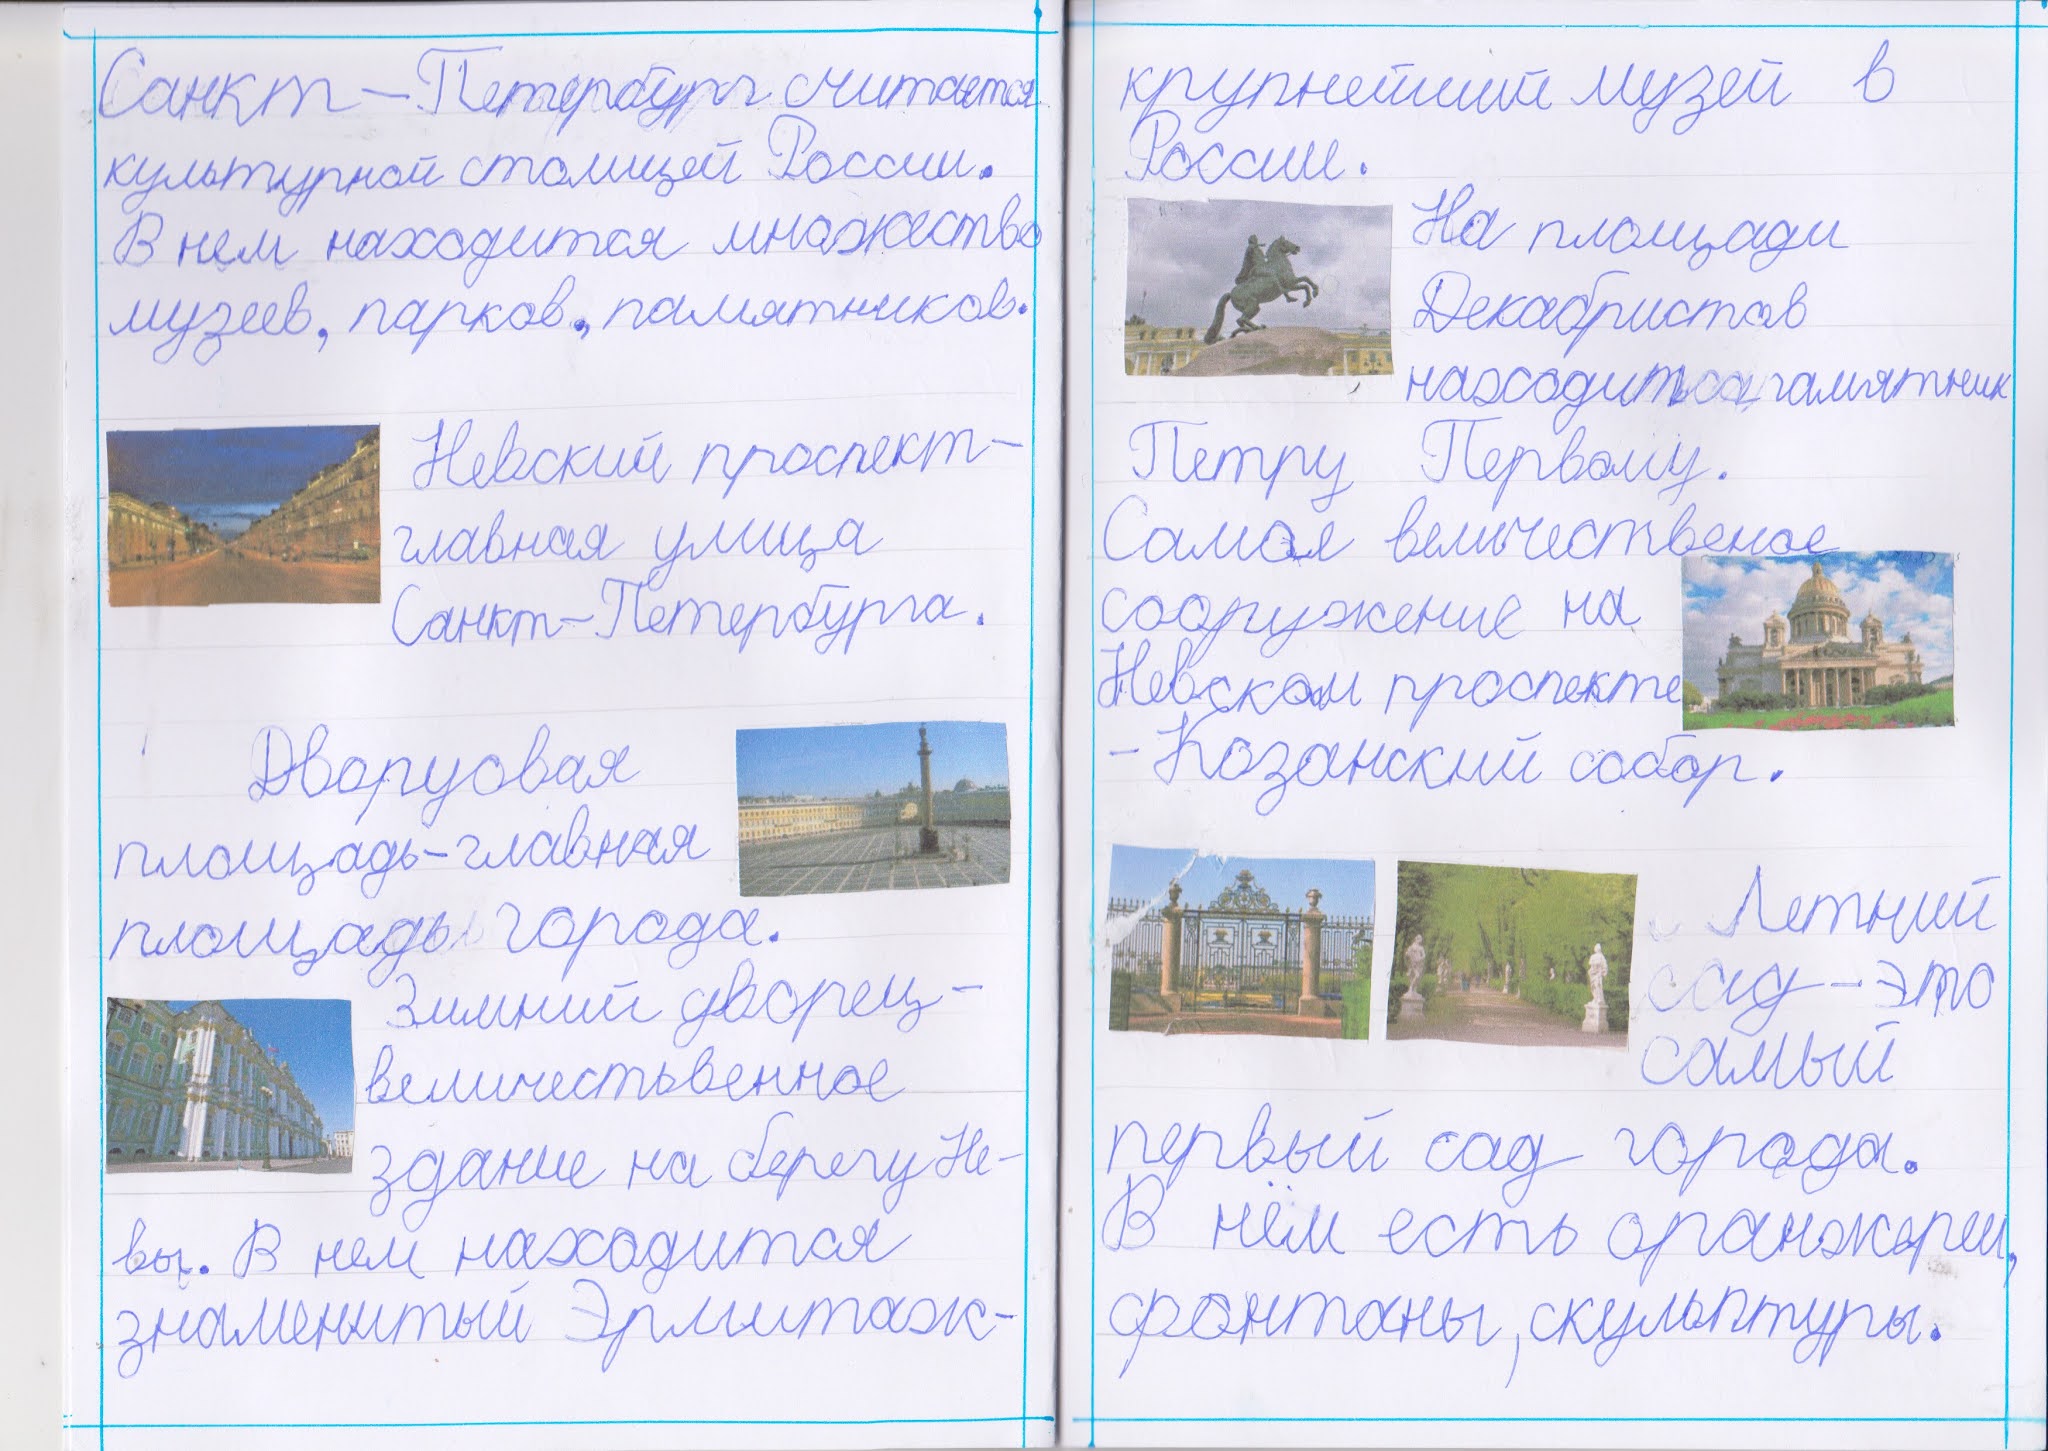 Санкт-Петербург считается
культурной столицей России.
В нем находится множество
музеев, парков, памятников.
Невский проспект-
главная улица
Санкт-Петербурга.
Дворцовая
площадь-главная
площадь города.
Зимний дворец-
величестьвенное
здание на берегу Не-
вы. В нем находится
знаменитый Эрмитаж-
крупнейший музей в
России.
На площади
Декабристов
находиться памятник
Петру Первому.
Самое величественое
сооружение на
Невском проспекте
-Козанский собор.
Летний
сад-это
самый
первый сад города.
В нём есть оранжереи,
фонтаны, скульптуры.